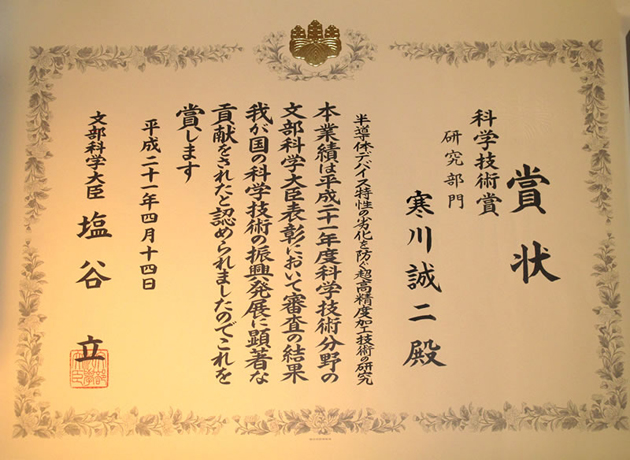 賞状
科学技術賞
研究部門
寒川誠二殿
半導体デバイス特性の劣化を防ぐ超高精度加工技術の研究
本業績は平成二十一年度科学技術分野の
文部科学大臣表彰において審査の結果
我が国の科学技術の振興発展に顕著な
貢献をされたと認められましたのでこれを
賞します
平成二十一年四月十四日
文部科学大臣 塩谷立